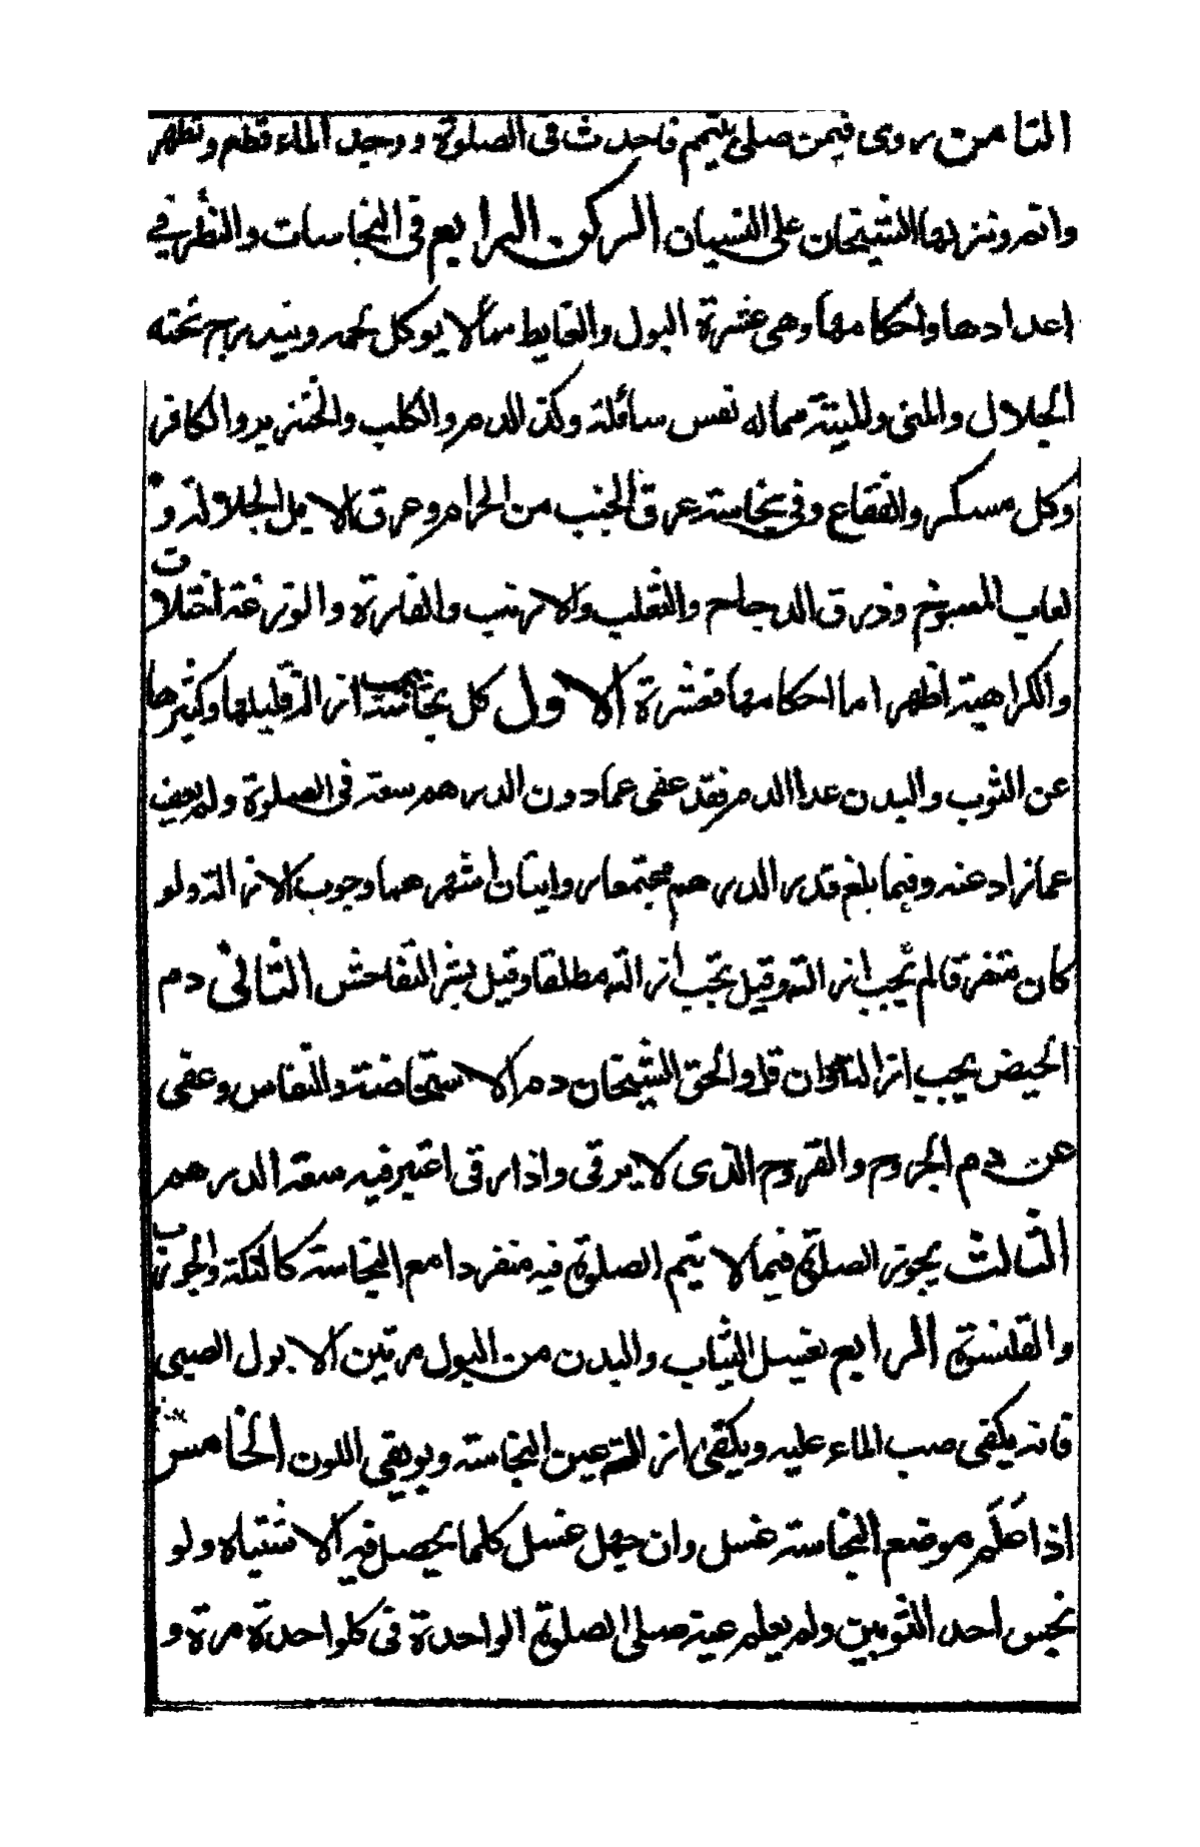 الثامن روى فيمن صلى بتيمم فاحدث فى الصلوة ووجد الماء قطع وتطهر
واتم ونزلها الشيخان على النسيان الركن الرابع فى النجاسات والنظر في
اعدادها واحكامها وهى عشرة البول والغايط مما لا يوكل لحمه ويندرج تحته
الجلال والمنى والميتة مما له نفس سائلة وكذا الدم والكلب والخنزير والكافر
وكل مسكر والفقاع وفى نجاسة عرق الجنب من الحرام وعرق الابل الجلالة و
لعاب المسوخ وذرق الدجاج والثعلب والارنب والفارة والوزغة اختلاف
والكراهية اظهر اما احكامها فعشرة الاول كل نجاسة يجب ازالة قليلها وكثيرها
عن الثوب والبدن عدا الدم فقد عفى عما دون الدرهم سعة فى الصلوة ولم يعف
عما زاد عنه وفيما بلغ قدر الدرهم مجتمعا روايتان اشهرهما وجوب الازالة ولو
كان متفرقا لم يجب ازالته وقيل تجب ازالته مطلقا وقيل بشرط التفاحش الثانى دم
الحيض يجب ازالته وان قل والحق الشيخان دم الاستحاضة والنفاس وعفى
عن دم الجروح والقروح الذى لا يرقى واذا رقى اعتبر فيه سعة الدرهم
الثالث يجوز الصلوة فيما لا يتم الصلوة فيه منفردا مع النجاسة كالتكة والجورب
والقلنسوة الرابع تغسل الثياب والبدن من البول مرتين الا بول الصبى
فانه يكفى صب الماء عليه ويكفى ازالة عين النجاسة وبويقى اللون الخامس
اذا علم موضع النجاسة غسل وان جهل غسل كلما يحصل فيه الاشتباه ولو
نجس احد الثوبين ولم يعلم عينه صلى الصلوة الواحدة فى كلواحدة مرة و